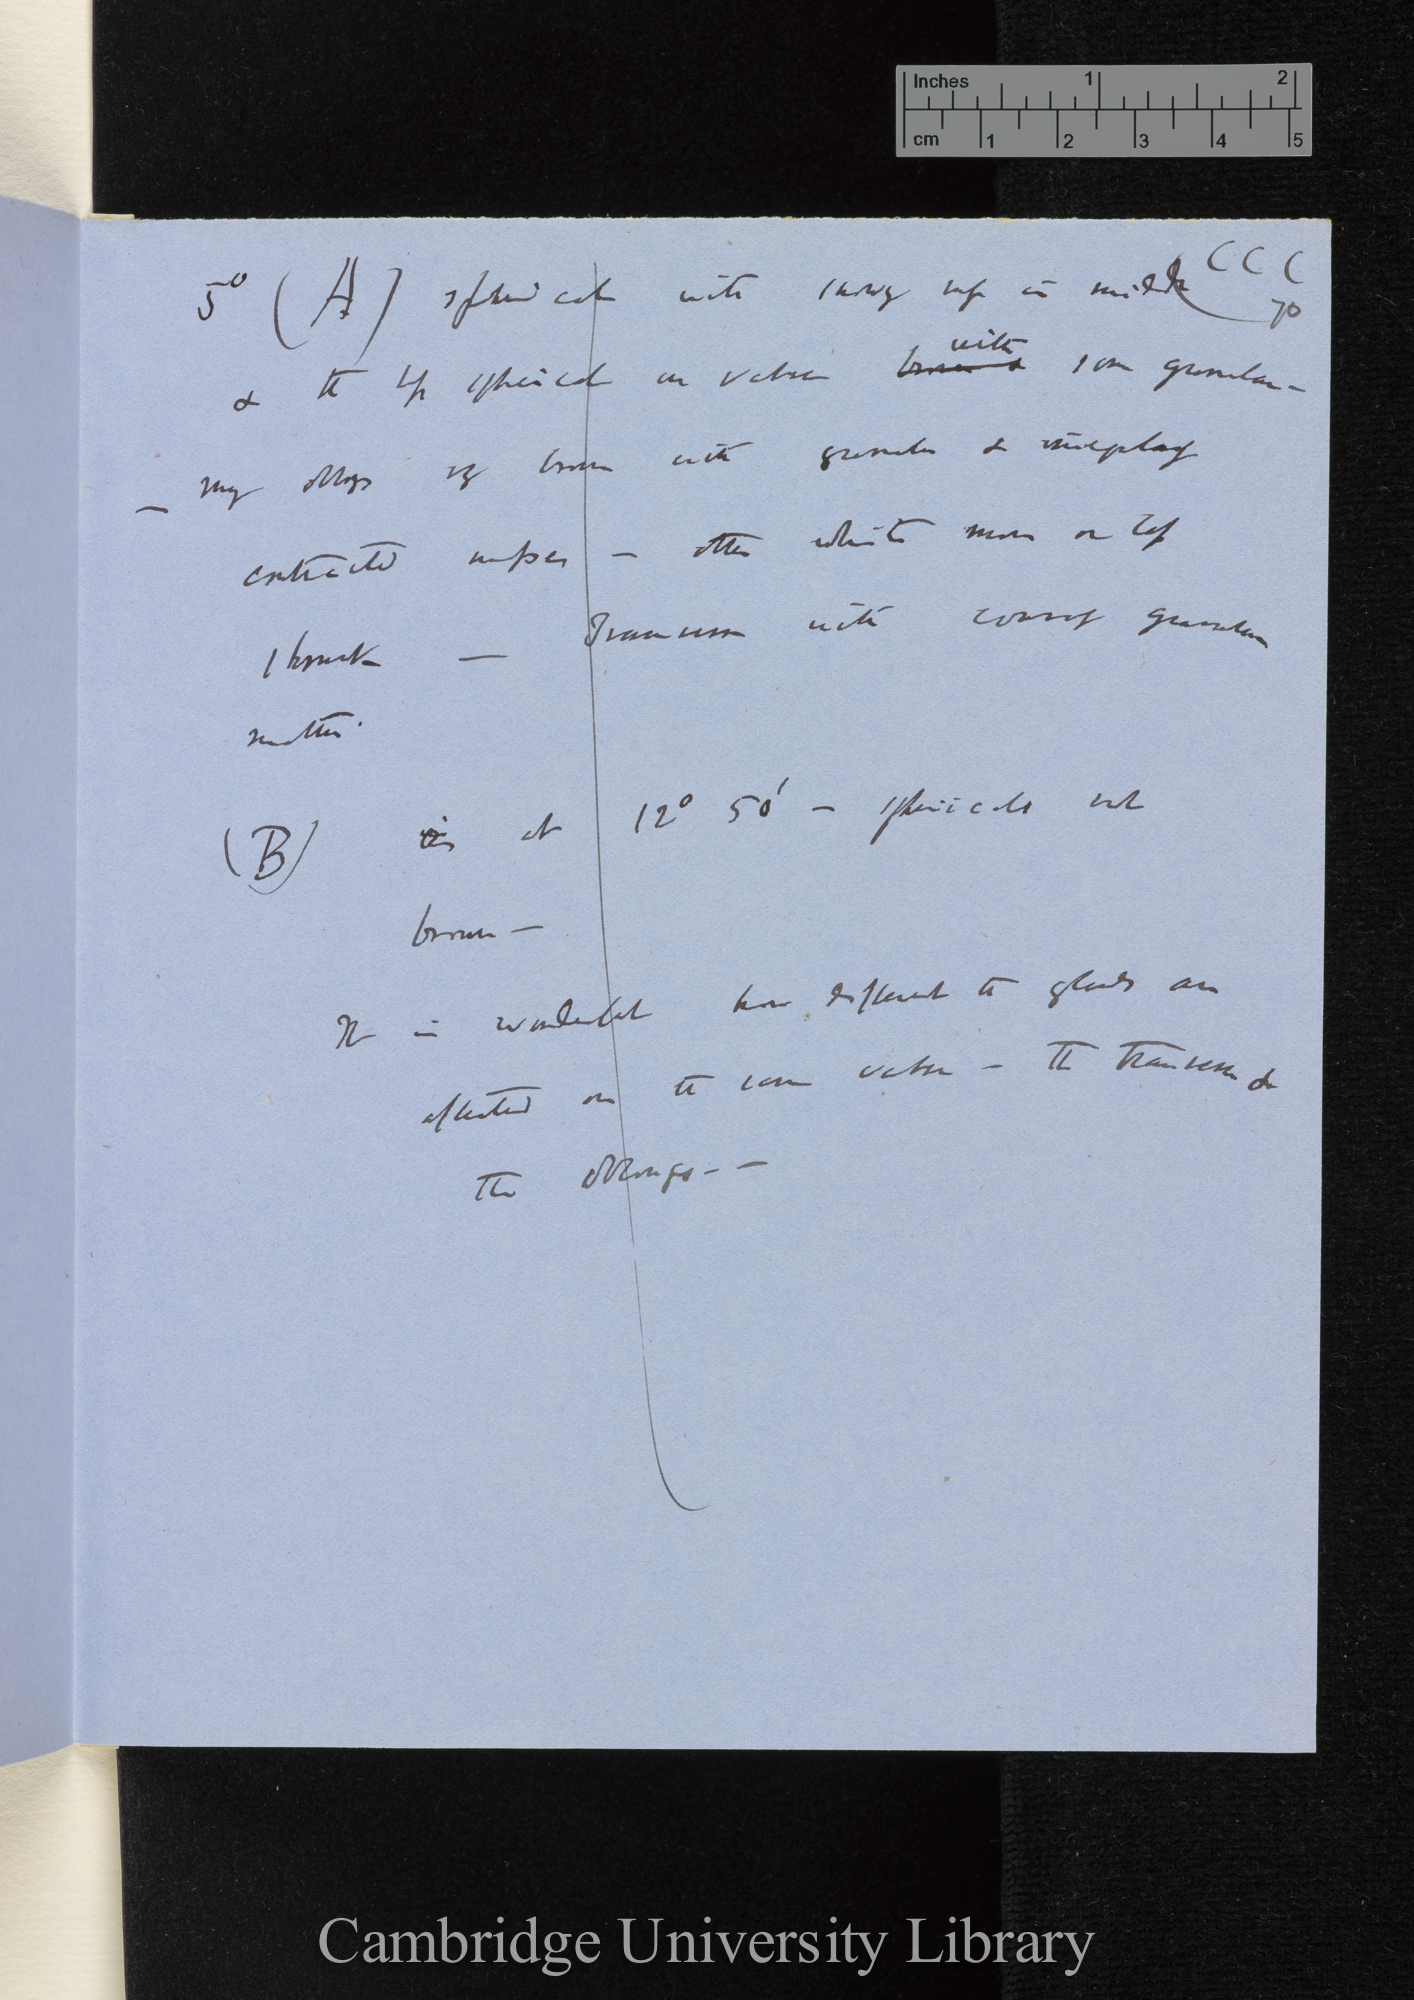 Inches 1 2
cm 1 2 3 4 5
CCC
70
5° (A) spherical with in middle
& the spherical on valve ~~brown &~~ with some granular
— my oblongs brown with granular &
contracted masses — other white more on top
— Transverse with granular
matter.
(B) is at 12° 50' — sphericals not
brown —
It is wonderful how different the glands are
affected on the same valve — the transverse &
the oblongs — —
Cambridge University Library